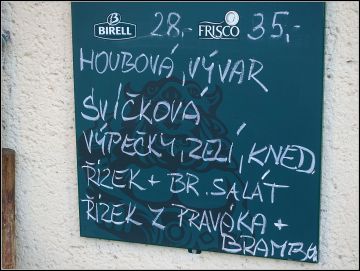 BIRELL 28,- FRISCO 35,-
HOUBOVÁ, VÝVAR
SVÍČKOVÁ
VÝPEČKY, ZELÍ, KNED
ŘÍZEK + BR. SALÁT
ŘÍZEK Z PRAVÁKA +
BRAMBO